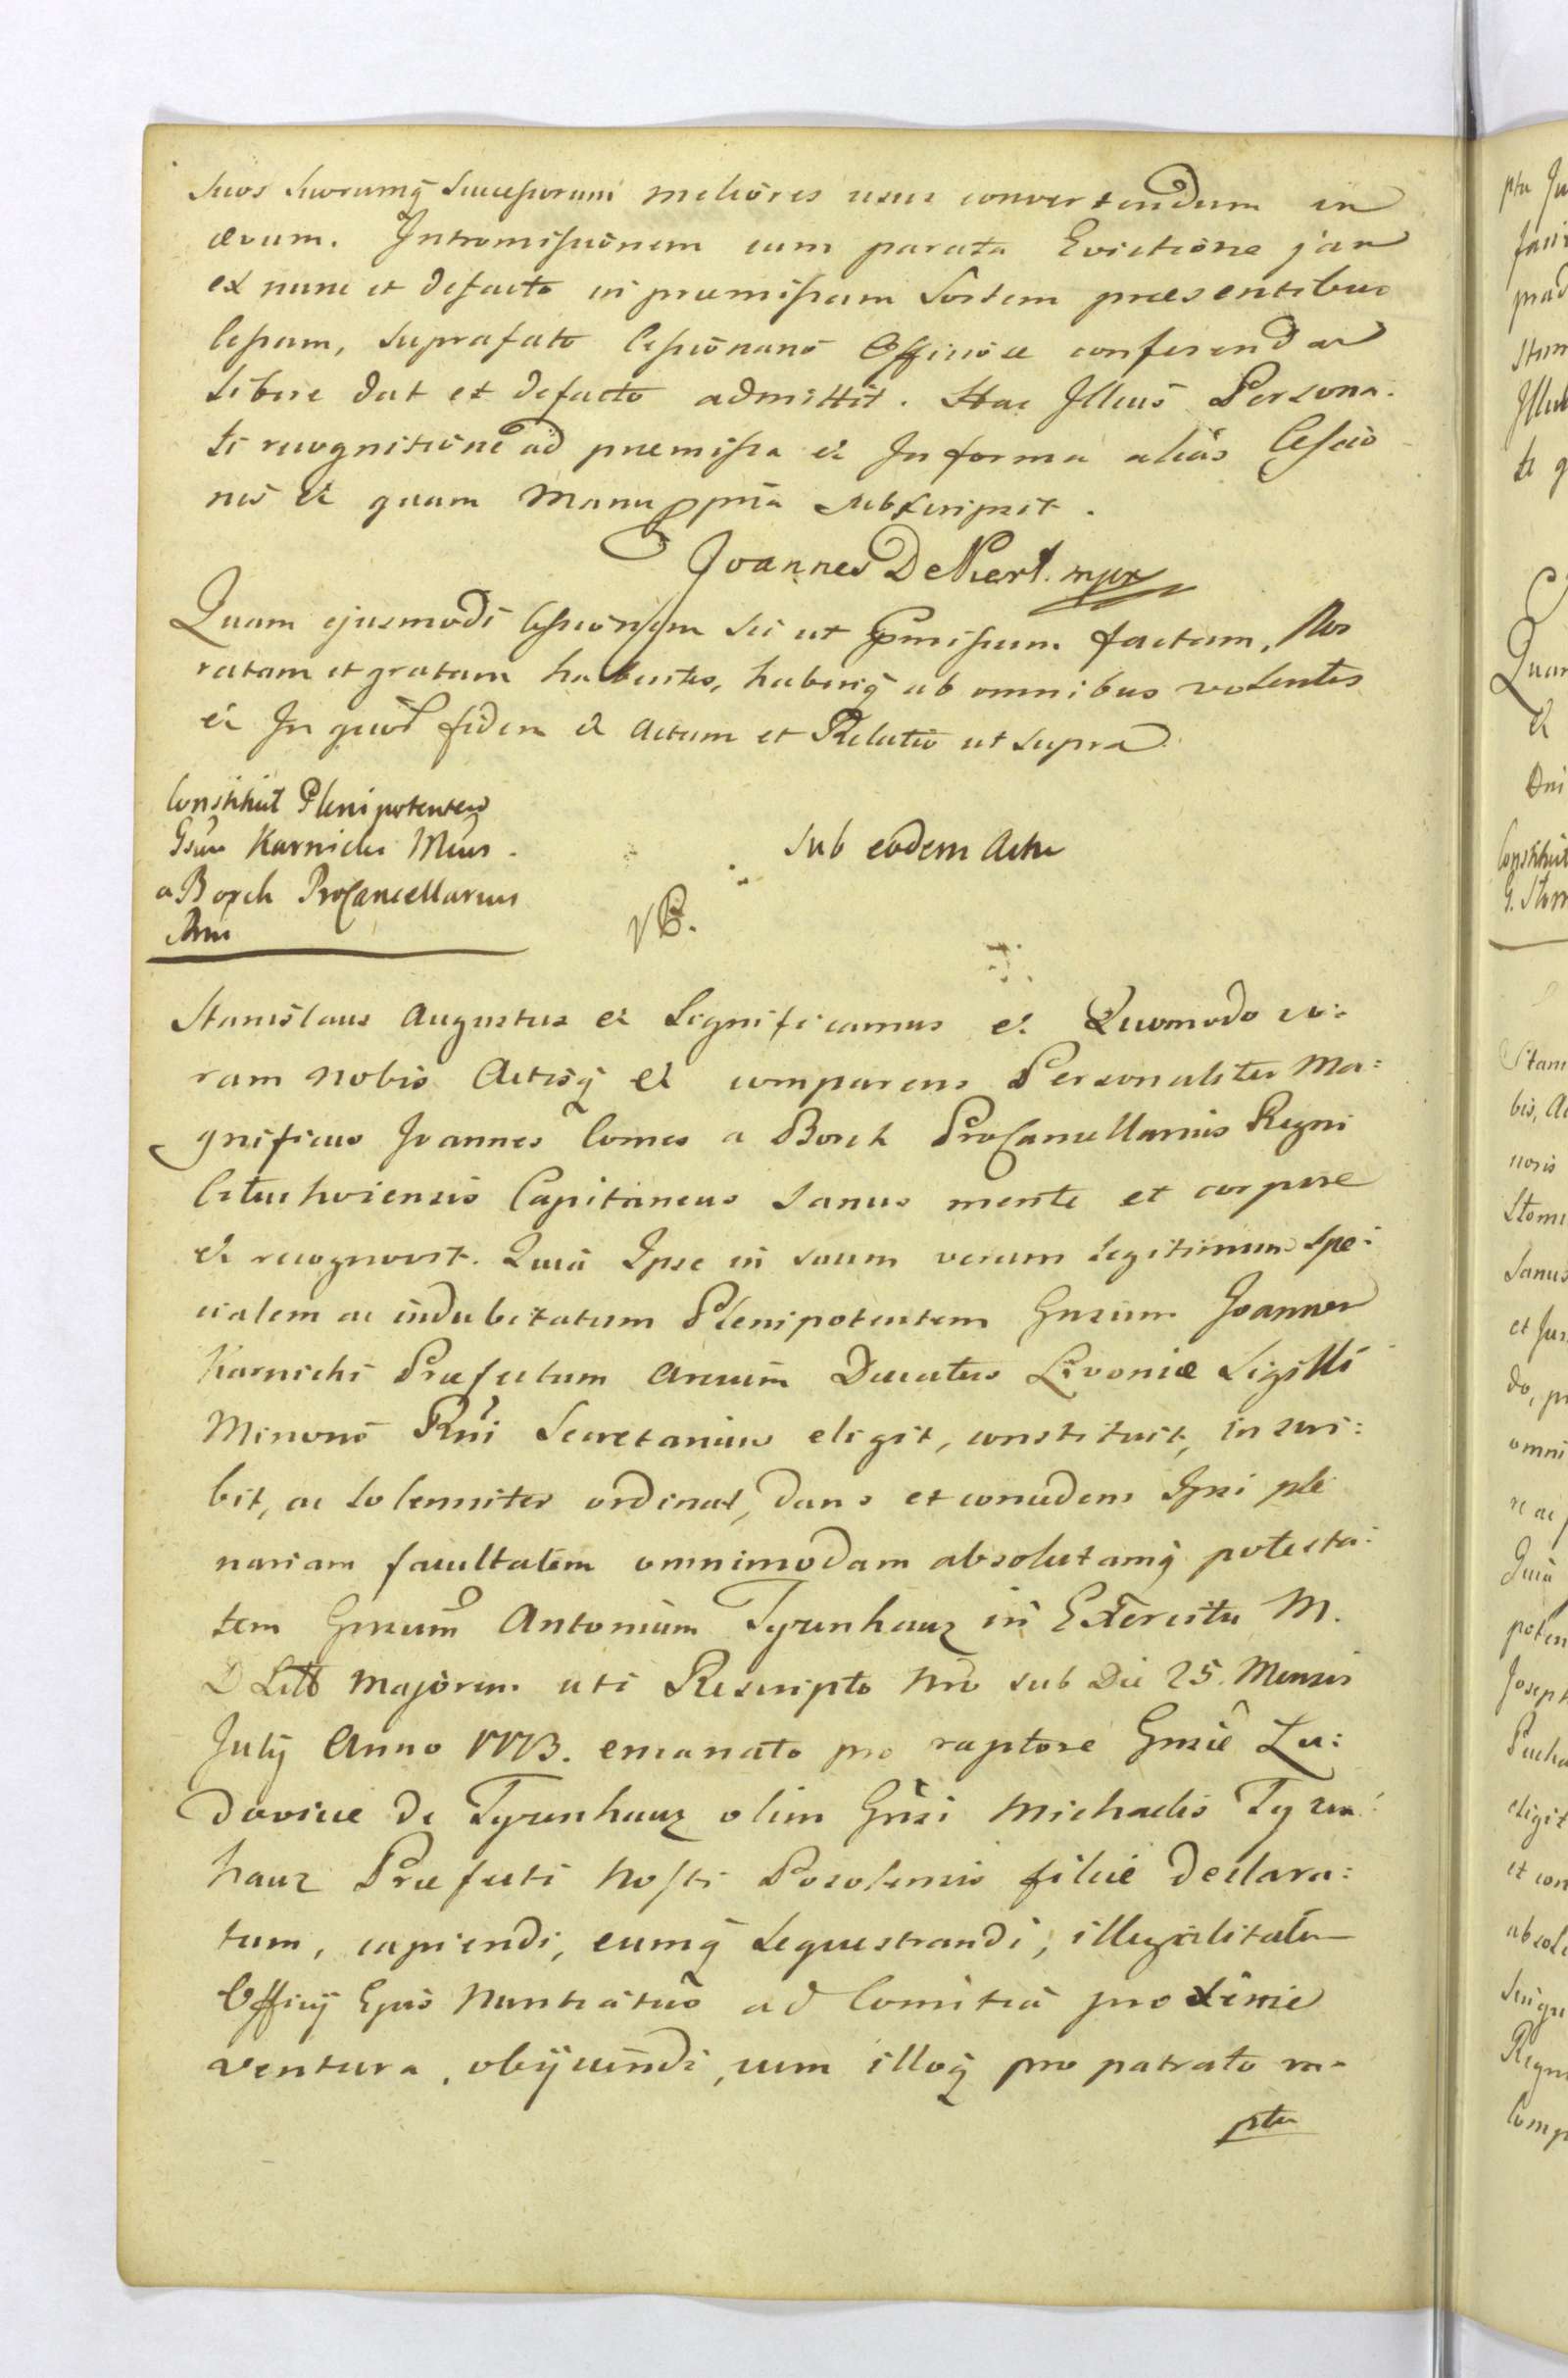 suos suorumq̃ Successorum meliores usus convertendum in
ævum. Intromissionem cum parata Evictione jam
ex nunc et defacto in præmissam Sortem præsentibus
Cessam, suprafato Cessionario Officiose conferendam
Libere dat et defacto admittit. Hac Illius Persona-
li recognitione ad præmissa &c In forma alias Cessio
nis &c quam Manu ppria subscripsit.
Joannes De Niert. mpr
Quam ejusmodi Cessionem sic ut Pmissum factam, Nos
ratam et gratam habentes, haberiq̃ ab omnibus volentes
&c In quor̃ fidem &c Actum et Relatio ut supra
Constituit Plenipotentem
Gsum Karnicki Mcus
a Borch ProCancellarius
Rni
Sub eodem Actu
NB.
Stanislaus Augustus &c Significamus &c Quomodo co:
ram nobis Actisq̃ &c comparens Personaliter Ma:
gnificus Joannes Comes a Borch ProCancellarius Regni
Capitaneus Sanus mente et corpore
&c recognovit. Quia Ipse in suum verum legitimum spe:
cialem ac indubitatum Plenipotentem Gnsum Joannem
Karnicki Præfectum Arcium Ducatus Livoniæ Sigilli
Minoris Rni Secretarium eligit, constituit, inscri:
bit, ac Solenniter ordinat, dans et concedens Ipsi ple
nariam facultatem omnimodam absolutamq̃ potesta:
tem Gnsum Antonium Tyzenhauz in Exercitu M.
D Litt Majorem uti Rescripto nro sub Die 25. Mensis
July Anno 1773. emanato pro raptore Gnsæ Lu:
dovicæ de Tyzenhauz olim Gnsi Michaelis Tyzen:
hauz Præfecti nostri Posolensis filiæ declara:
tum, capiendi, eumq̃ sequestrandi, illegalitatem
Officij Ejus Nuntiatus ad Comitia proxime
ventura, objiciendi, cum illoq̃ pro patrato ra-
ptu